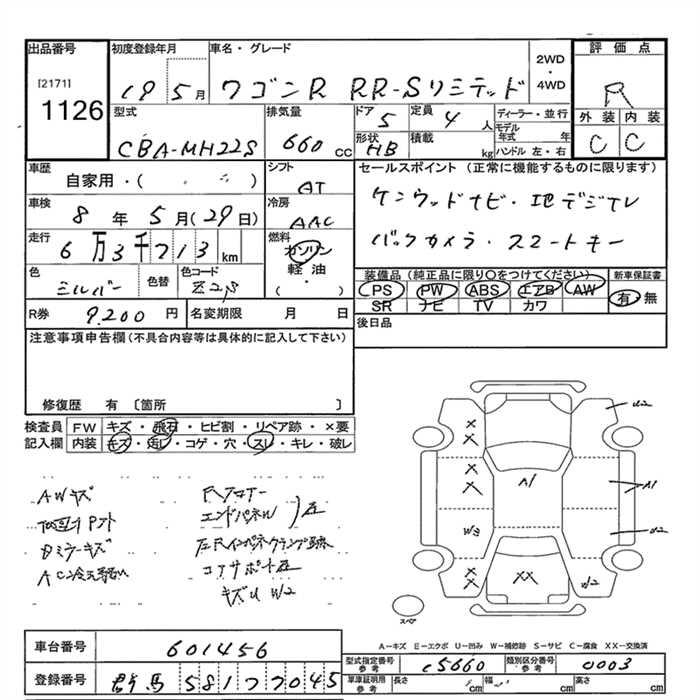 出品番号
[2171]
1126
初度登録年月
19 5月
車名・グレード
ワゴンR RR-Sリミテッド
2WD
4WD
評価点
R
外装 内装
C C
型式
CBA-MH22S
排気量
660 cc
ドア
5
定員
4 人
形状
HB
積載
kg
ディーラー・並行
モデル年式 年
ハンドル 左・右
車歴
自家用・( )
シフト
AT
車検
8年 5月(29日)
冷房
AAC
走行
6万3千713 km
燃料
ガソリン
軽油
( ・ )
色
シルバー
色替
色コード
Z2S
R券
9,200 円
名変期限 月 日
セールスポイント (正常に機能するものに限ります)
ケンウッドナビ・地デジTV
バックカメラ・スマートキー
装備品 (純正品に限り○をつけてください)
新車保証書
PS PW ABS エアB AW
SR ナビ TV カワ
有・無
後日品
注意事項申告欄 (不具合内容等は具体的に記入して下さい)
修復歴 有 〔箇所 〕
検査員
記入欄
FW キズ・飛石・ヒビ割・リペア跡・×要
内装 キズ・汚レ・コゲ・穴・スレ・キレ・破レ
AWキズ
エンドパネル
左
コアサポート左
キズU W2
A1
A1
W3
W2
XX
スペア
A-キズ E-エクボ U-凹み W-補修跡 S-サビ C-腐食 XX-交換済
車台番号
601456
登録番号
群馬 581 77045
型式指定番号
参考
15660
類別区分番号
参考
0003
車庫証明用
参考
長さ cm 幅 cm 高さ cm